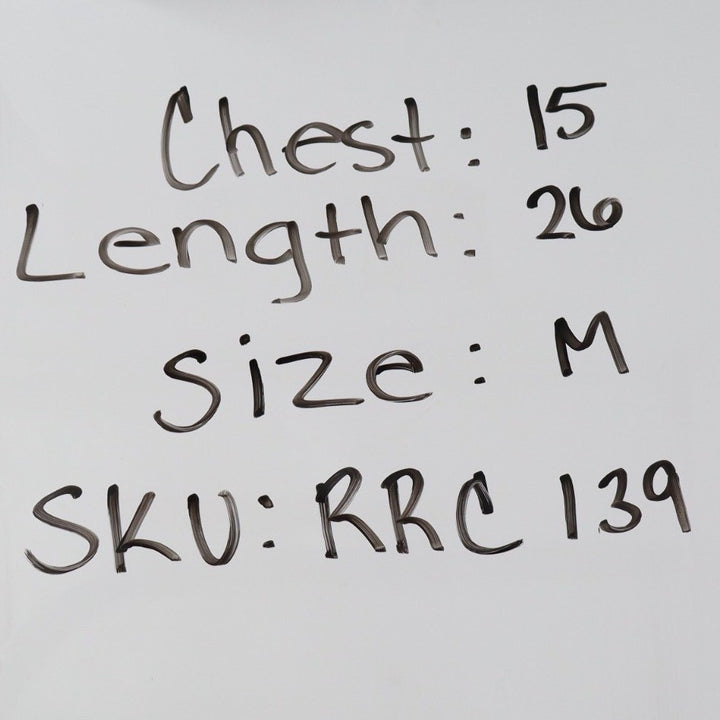 Chest: 15
Length: 26
Size: M
SKU: RRC 139